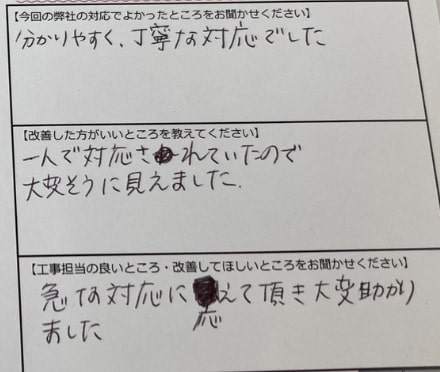 【今回の弊社の対応でよかったところをお聞かせください】
分かりやすく、丁寧な対応でした
【改善した方がいいところを教えてください】
一人で対応されていたので
大変そうに見えました。
【工事担当の良いところ・改善してほしいところをお聞かせください】
急な対応に応えて頂き大変助かり
ました